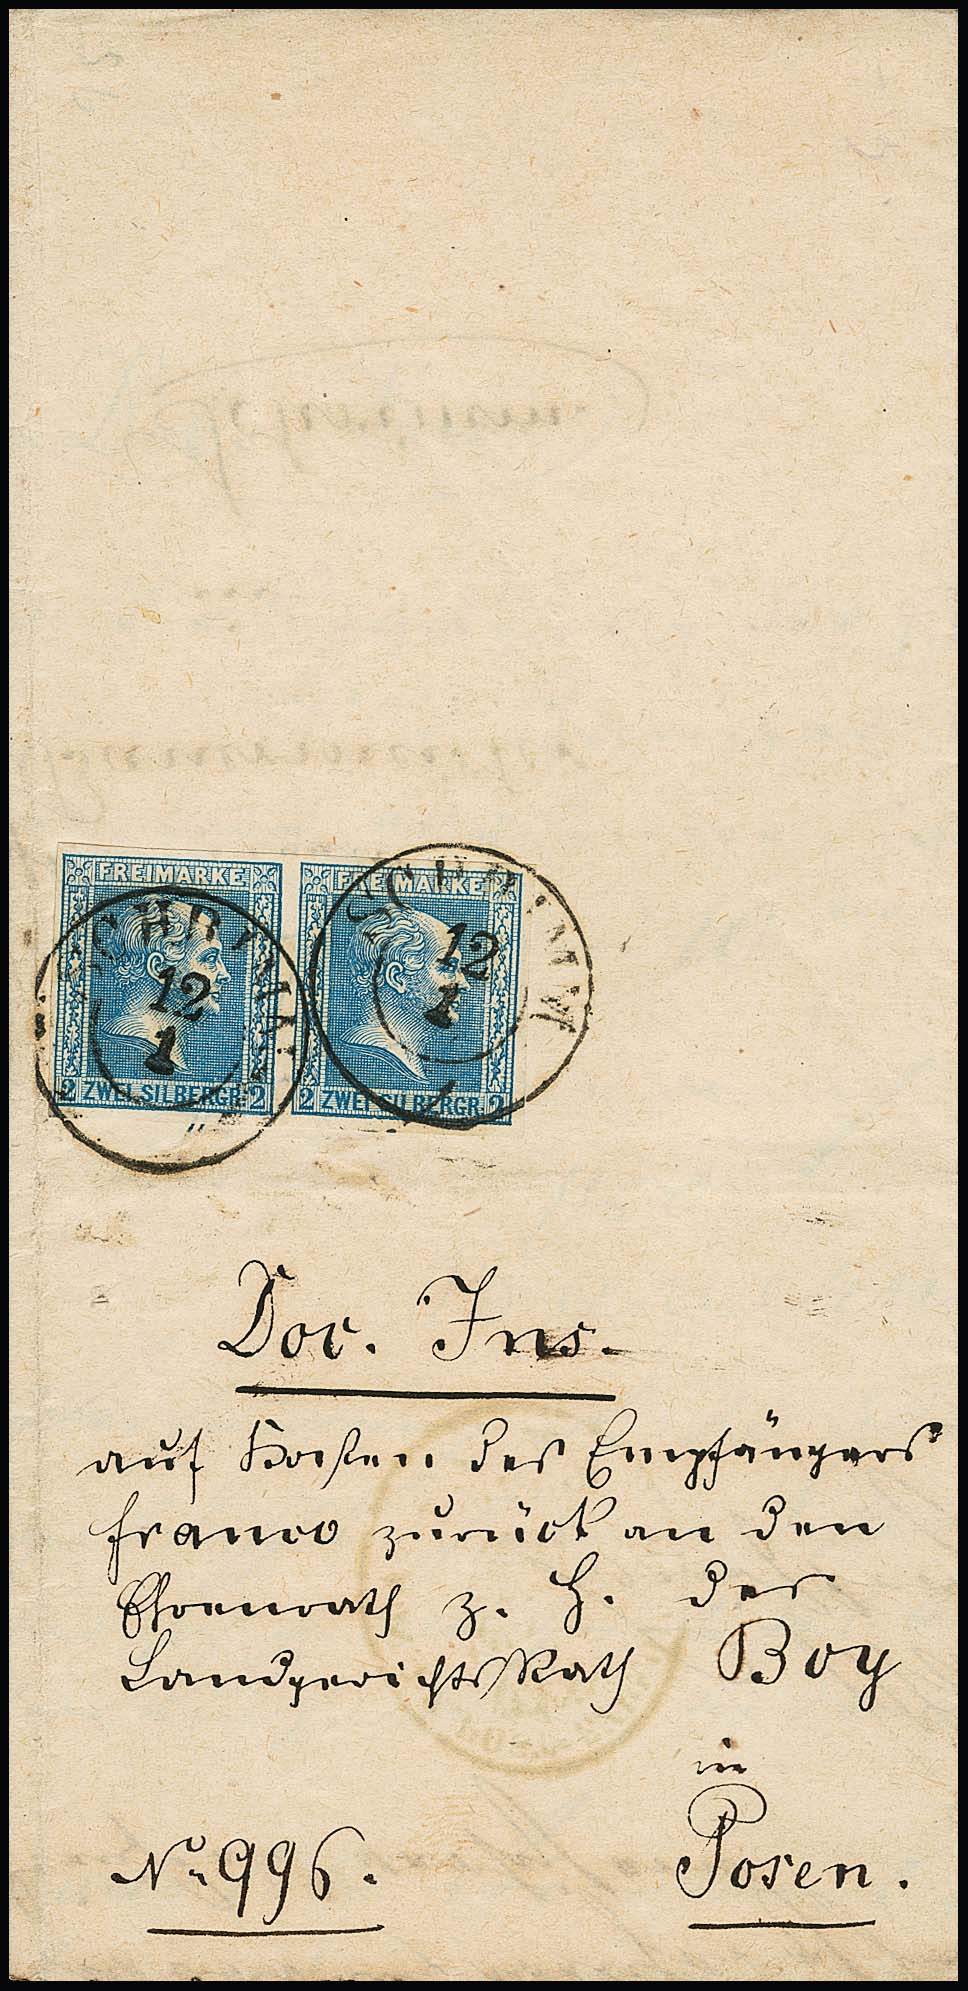 FREIMARKE
FREIMARKE
SCHRIMM
12
1
SCHRIMM
12
1
2 ZWEI SILBERGR. 2
2 ZWEI SILBERGR. 2
Doc. Ins.
auf Kosten des Empfängers
franco zurück an den
Ehrenrath z. H. des
LandgerichtsRath Boy
in
Posen.
No 996.